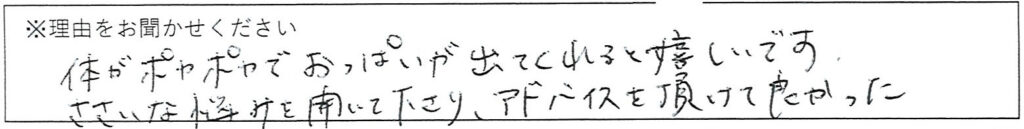 ※理由をお聞かせください
体がポヤポヤでおっぱいが出てくれると嬉しいです.
ささいな悩みを聞いて下さり、アドバイスを頂けて良かった